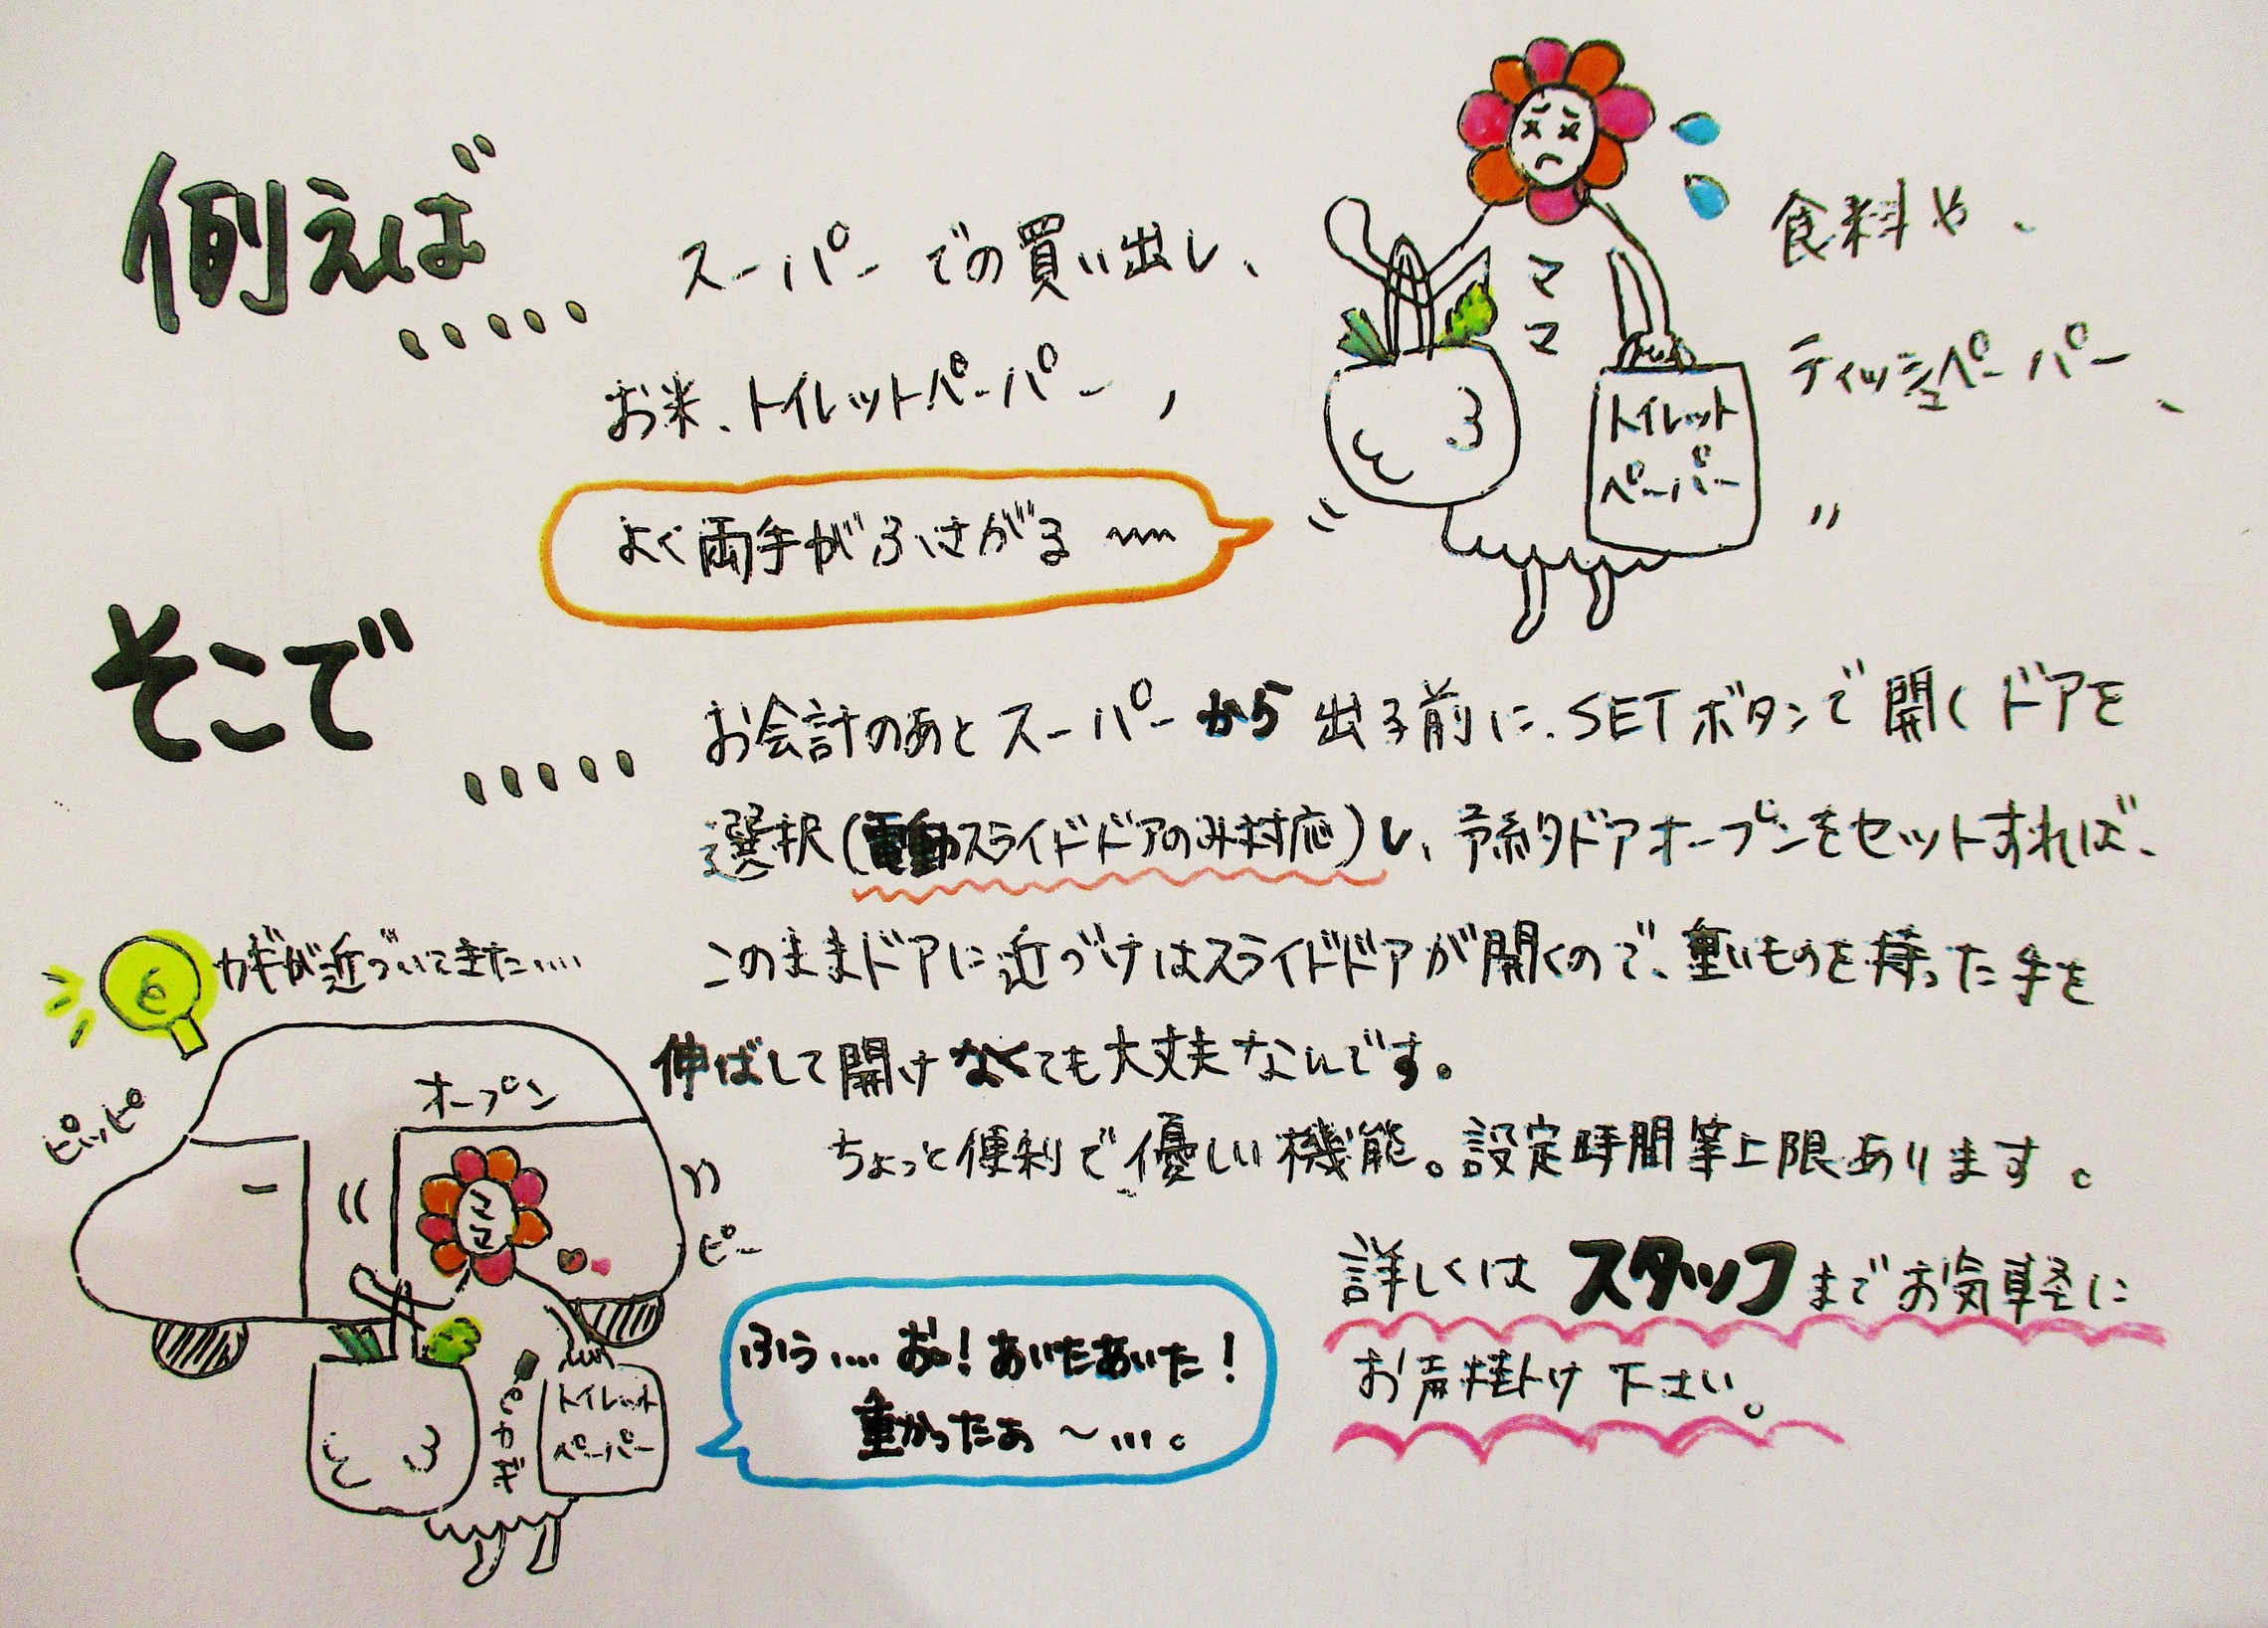 例えば
・・・・・
スーパーでの買い出し、
食料や、
お米、トイレットペーパー、
ティッシュペーパー、
ママ
トイレット
ペーパー
よく両手がふさがる〰
そこで
・・・・・
お会計のあとスーパーから出る前に、SETボタンで開くドアを
選択(電動スライドドアのみ対応)し、予約ドアオープンをセットすれば、
このままドアに近づけばスライドドアが開くので、重いものを持った手を
伸ばして開けなくても大丈夫なんです。
ちょっと便利で優しい機能。設定時間等上限あります。
詳しくはスタッフまでお気軽に
お声掛け下さい。
カギが近づいてきた....
ピッピ
オープン
ママ
ピー
カギ
トイレット
ペーパー
ふぅ....おっ!あいたあいた!
重かったぁ～...。